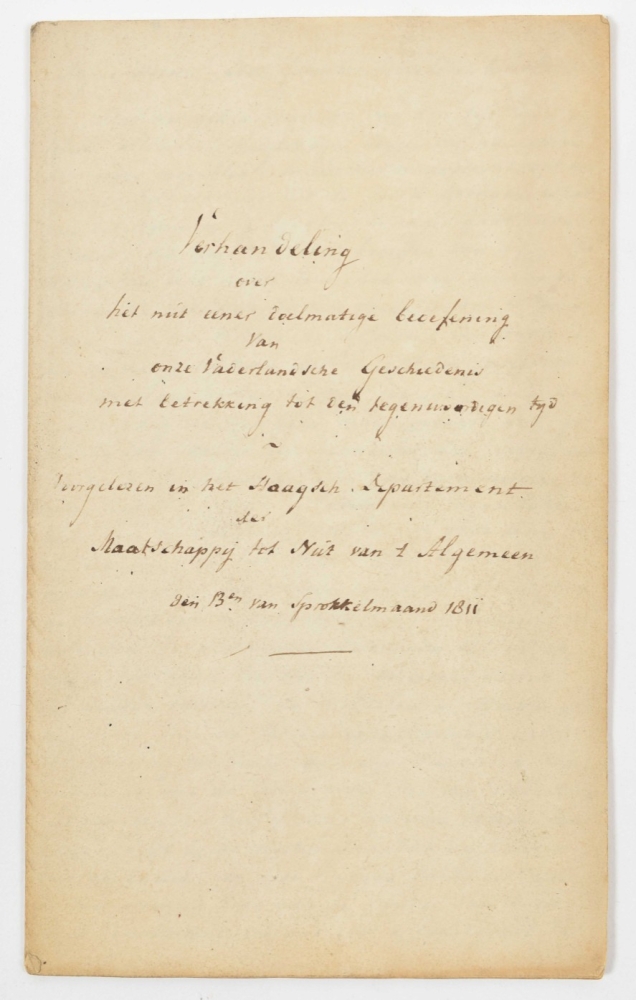 Verhandeling
over
het nut eener doelmatige beoefening
van
onze Vaderlandsche Geschiedenis
met betrekking tot den tegenwoordigen tyd
~
Voorgelezen in het Haagsch Departement
der
Maatschappij tot Nut van t Algemeen
den 13en van Sprokkelmaand 1811